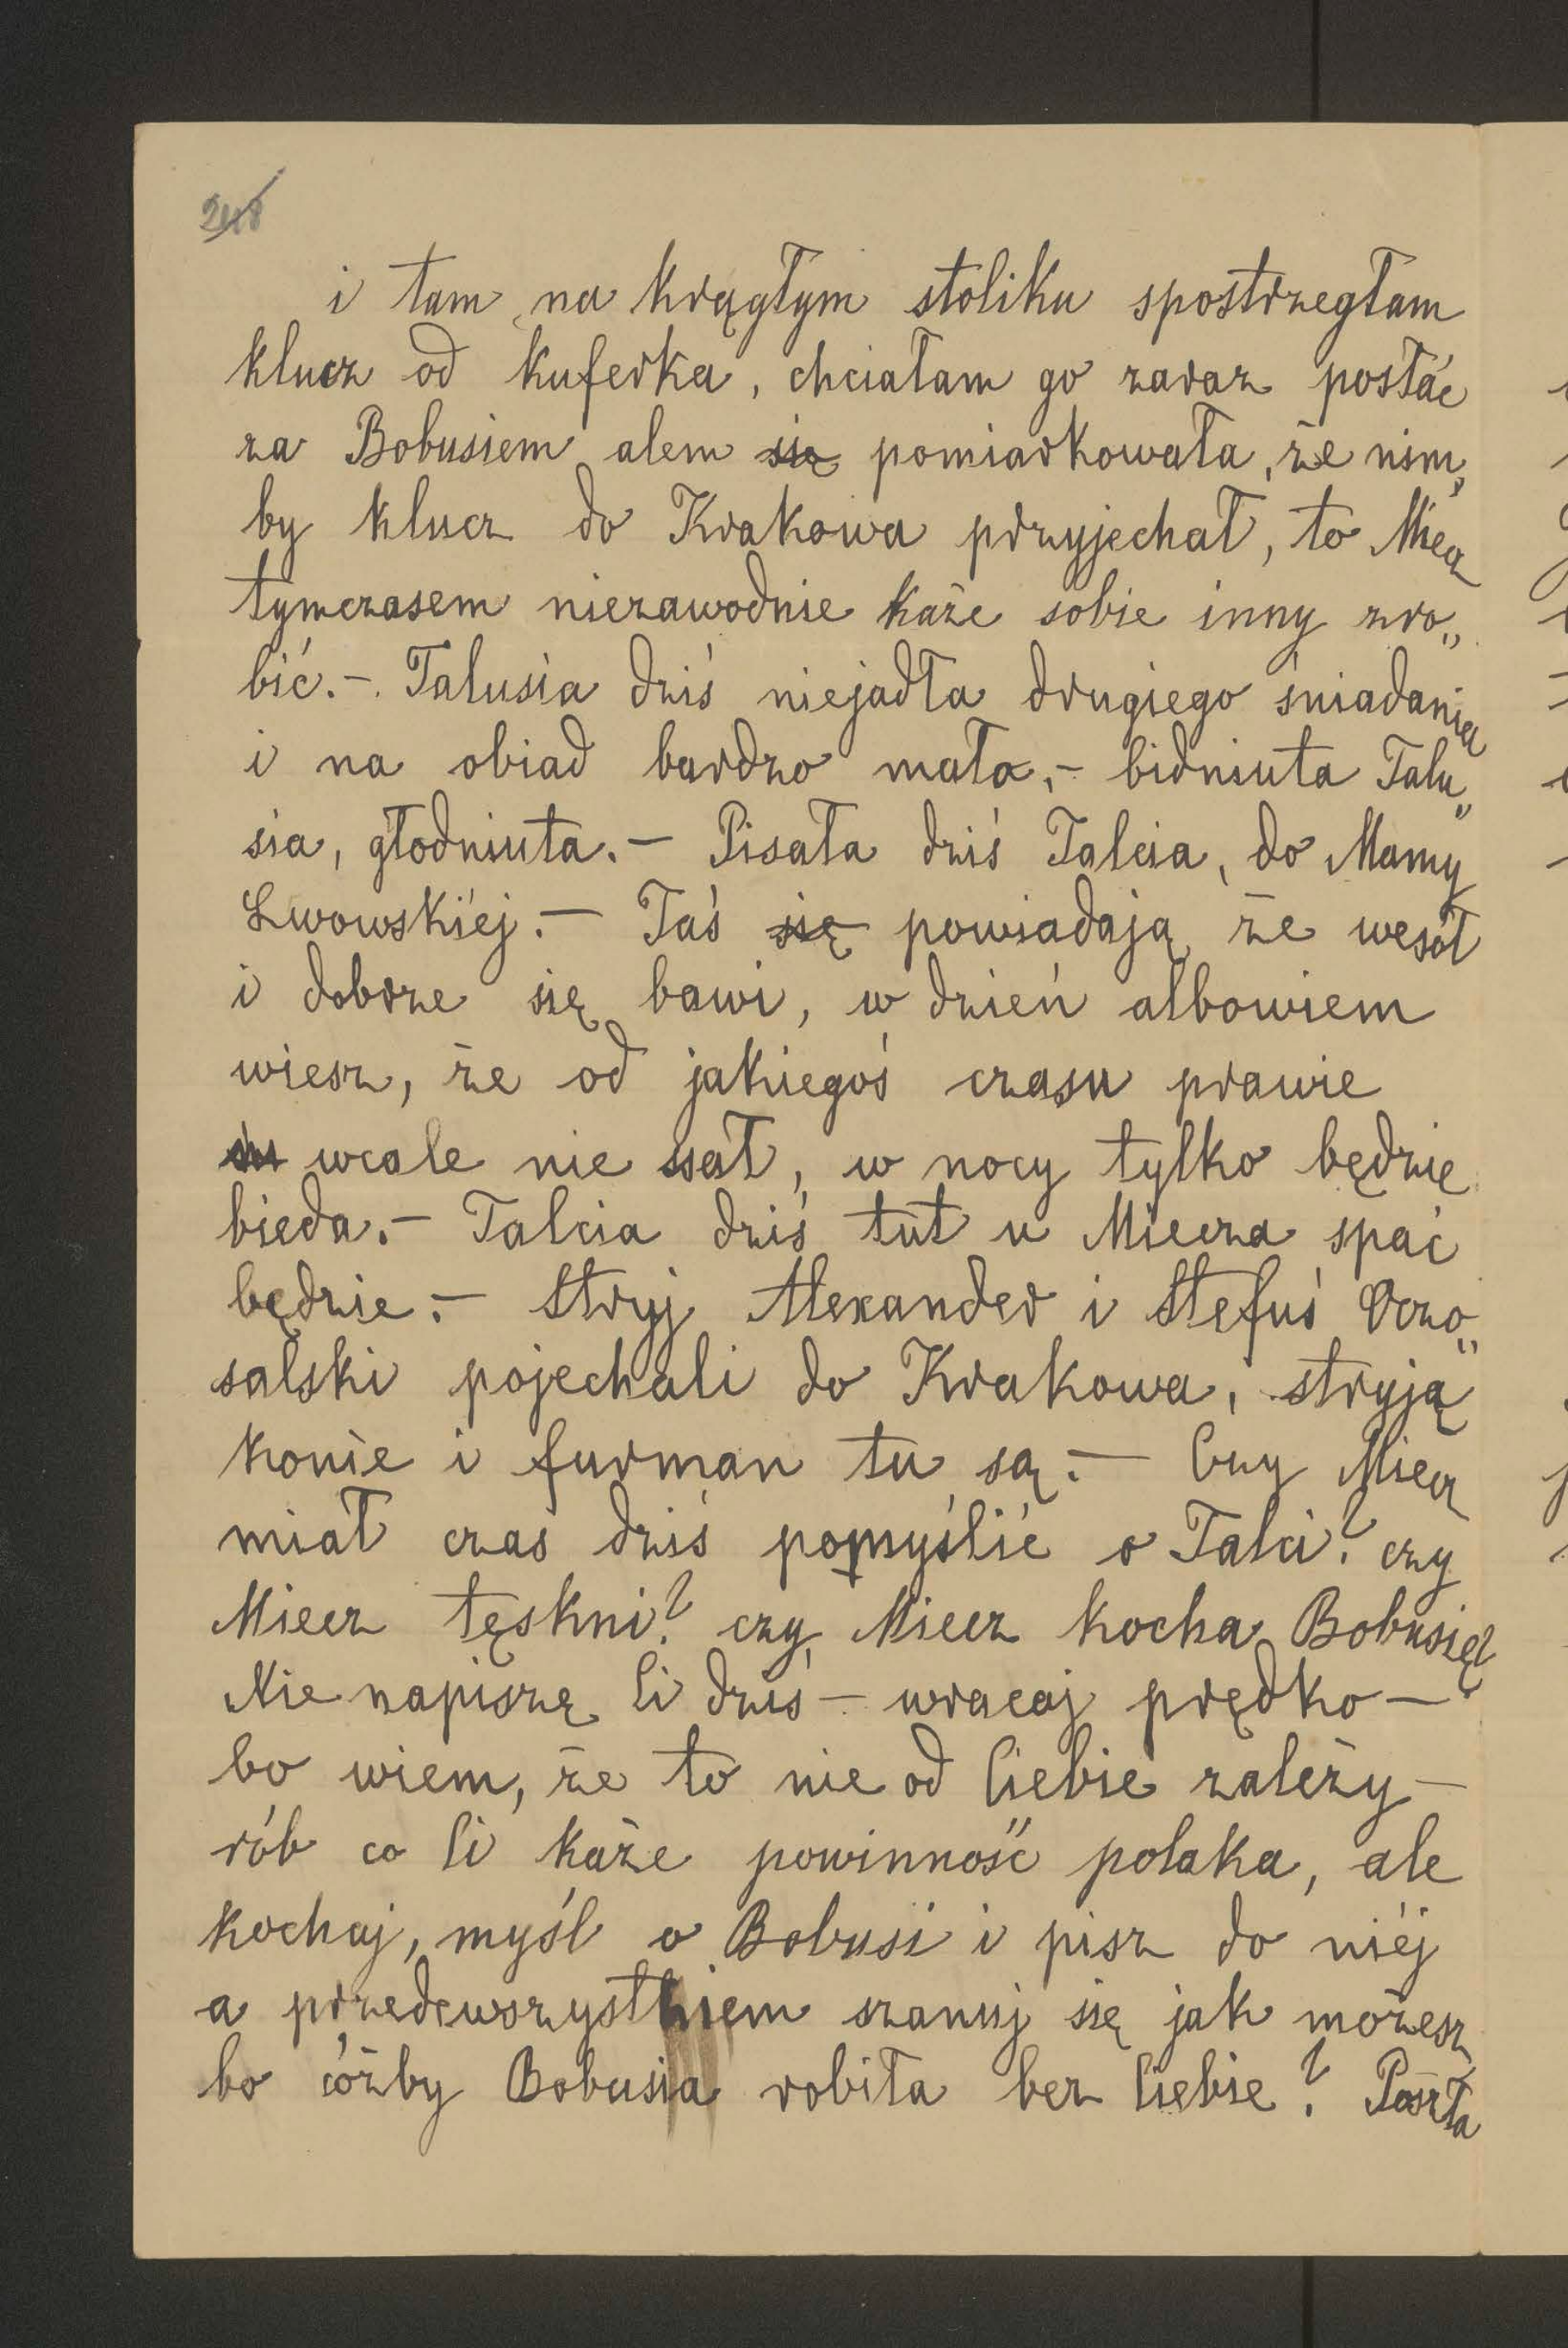 248
i tam na krągłym stoliku spostrzegłam
klucz od kuferka, chciałam go zaraz posłać
za Bobusiem alem się pomiarkowała, że nim„
by klucz do Krakowa przyjechał, to Miecz
tymczasem niezawodnie każe sobie inny zro„
bić.- Talusia dziś niejadła drugiego śniadania
i na obiad bardzo mało,- bidniuta Talu„
sia, głodniuta.- Pisała dziś Talcia, do Mamy
Lwowskiéj.- Taś się powiadają że wesół
i dobrze się bawi, w dzień albowiem
wiesz, że od jakiegoś czasu prawie
wcale nie ssał, w nocy tylko będzie
bieda.- Talcia dziś tut u Miecza spać
będzie.- Stryj Alexander i Stefuś
salski pojechali do Krakowa, stryja
konie i furman tu są.- Czy Miecz
miał czas dziś pomyślić o Talci? czy
Miecz tęskni? czy Miecz kocha Bobusię?
Nie napiszę Ci dziś - wracaj prędko -
bo wiem, że to nie od Ciebie zależy -
rób co Ci każe powinność polaka, ale
kochaj, myśl o Bobusi i pisz do niéj
a przedewszystkiem szanuj się jak możesz
bo cóżby Bobusia robiła bez Ciebie? Poszła